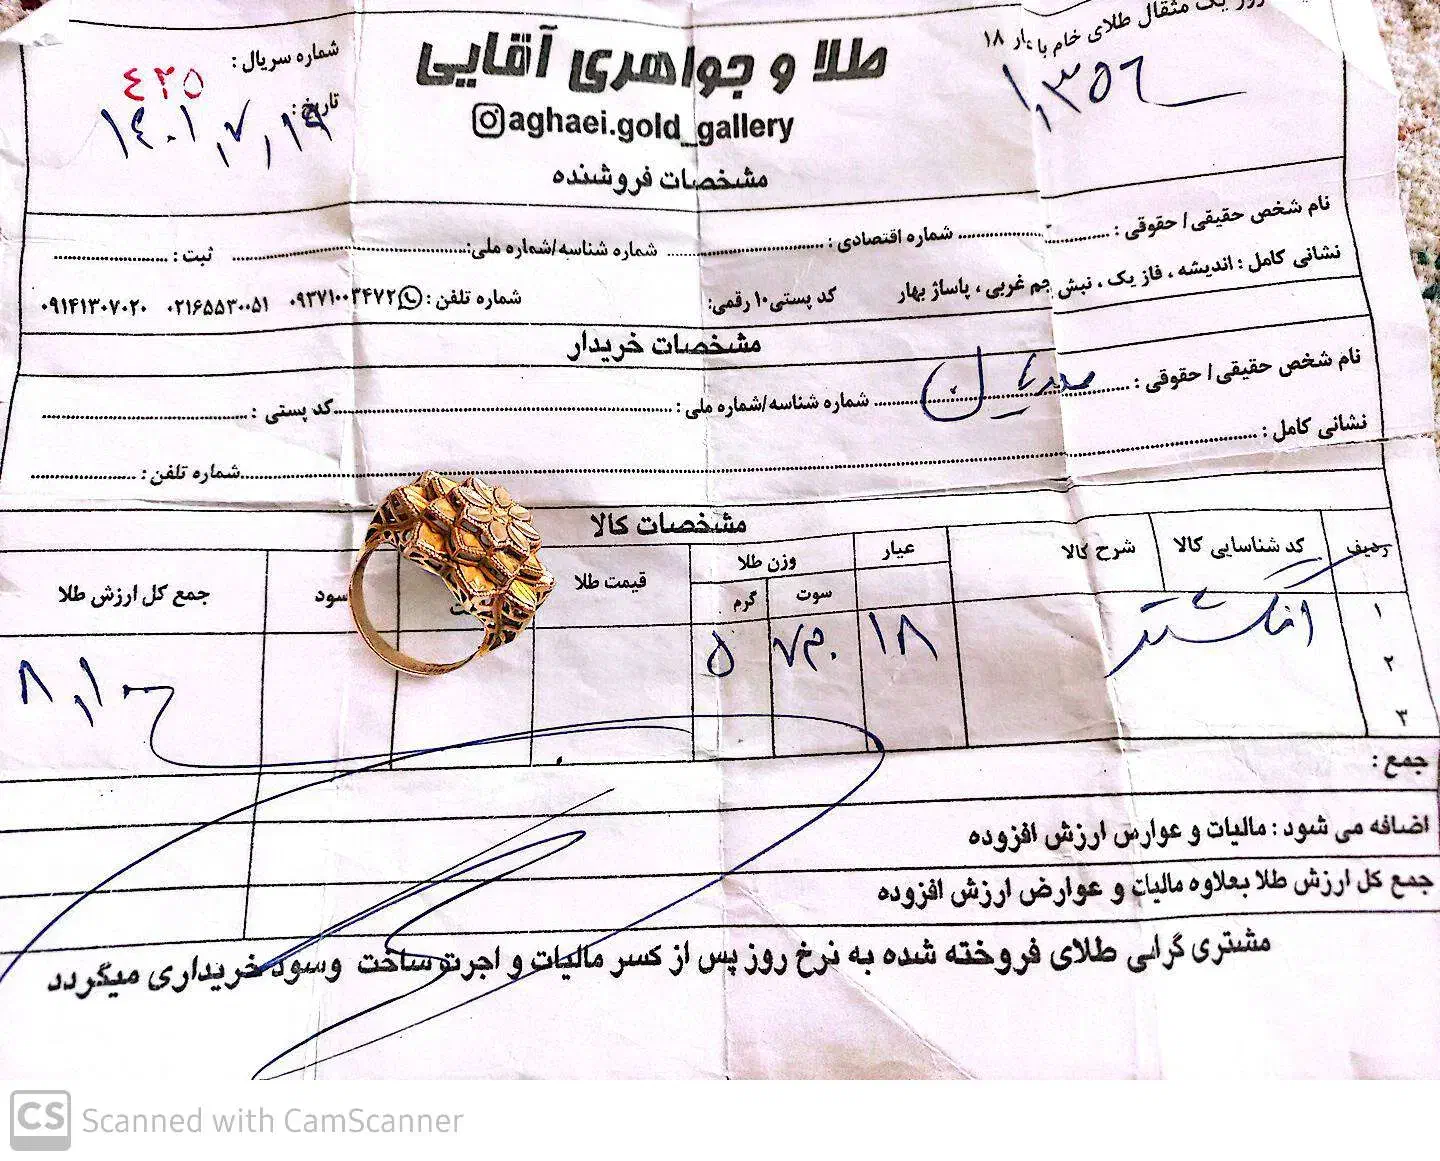 روز یک مثقال طلای خام با عیار ۱۸
۱,۳۵۶
طلا و جواهری آقایی
aghaei.gold_gallery
شماره سریال : ۴۲۵
تاریخ : ۱۴۰۱,۷,۱۹
مشخصات فروشنده
نام شخص حقیقی / حقوقی : شماره اقتصادی : شماره شناسه/شماره ملی: ثبت :
نشانی کامل : اندیشه ، فاز یک ، نبش جم غربی ، پاساژ بهار کد پستی ۱۰ رقمی: شماره تلفن : ۰۹۳۷۱۰۰۳۴۷۲ ۰۲۱۶۵۵۳۰۰۵۱ ۰۹۱۴۱۳۰۷۰۲۰
مشخصات خریدار
نام شخص حقیقی / حقوقی : شماره شناسه/شماره ملی : کد پستی :
نشانی کامل : شماره تلفن :
مشخصات کالا
ردیف کد شناسایی کالا شرح کالا عیار وزن طلا سوت گرم قیمت طلا سود جمع کل ارزش طلا
۱ انگشتر ۱۸ ۵
۲
۳
جمع :
اضافه می شود : مالیات و عوارض ارزش افزوده
جمع کل ارزش طلا بعلاوه مالیات و عوارض ارزش افزوده
مشتری گرامی طلای فروخته شده به نرخ روز پس از کسر مالیات و اجرت ساخت وسود خریداری میگردد
CS Scanned with CamScanner